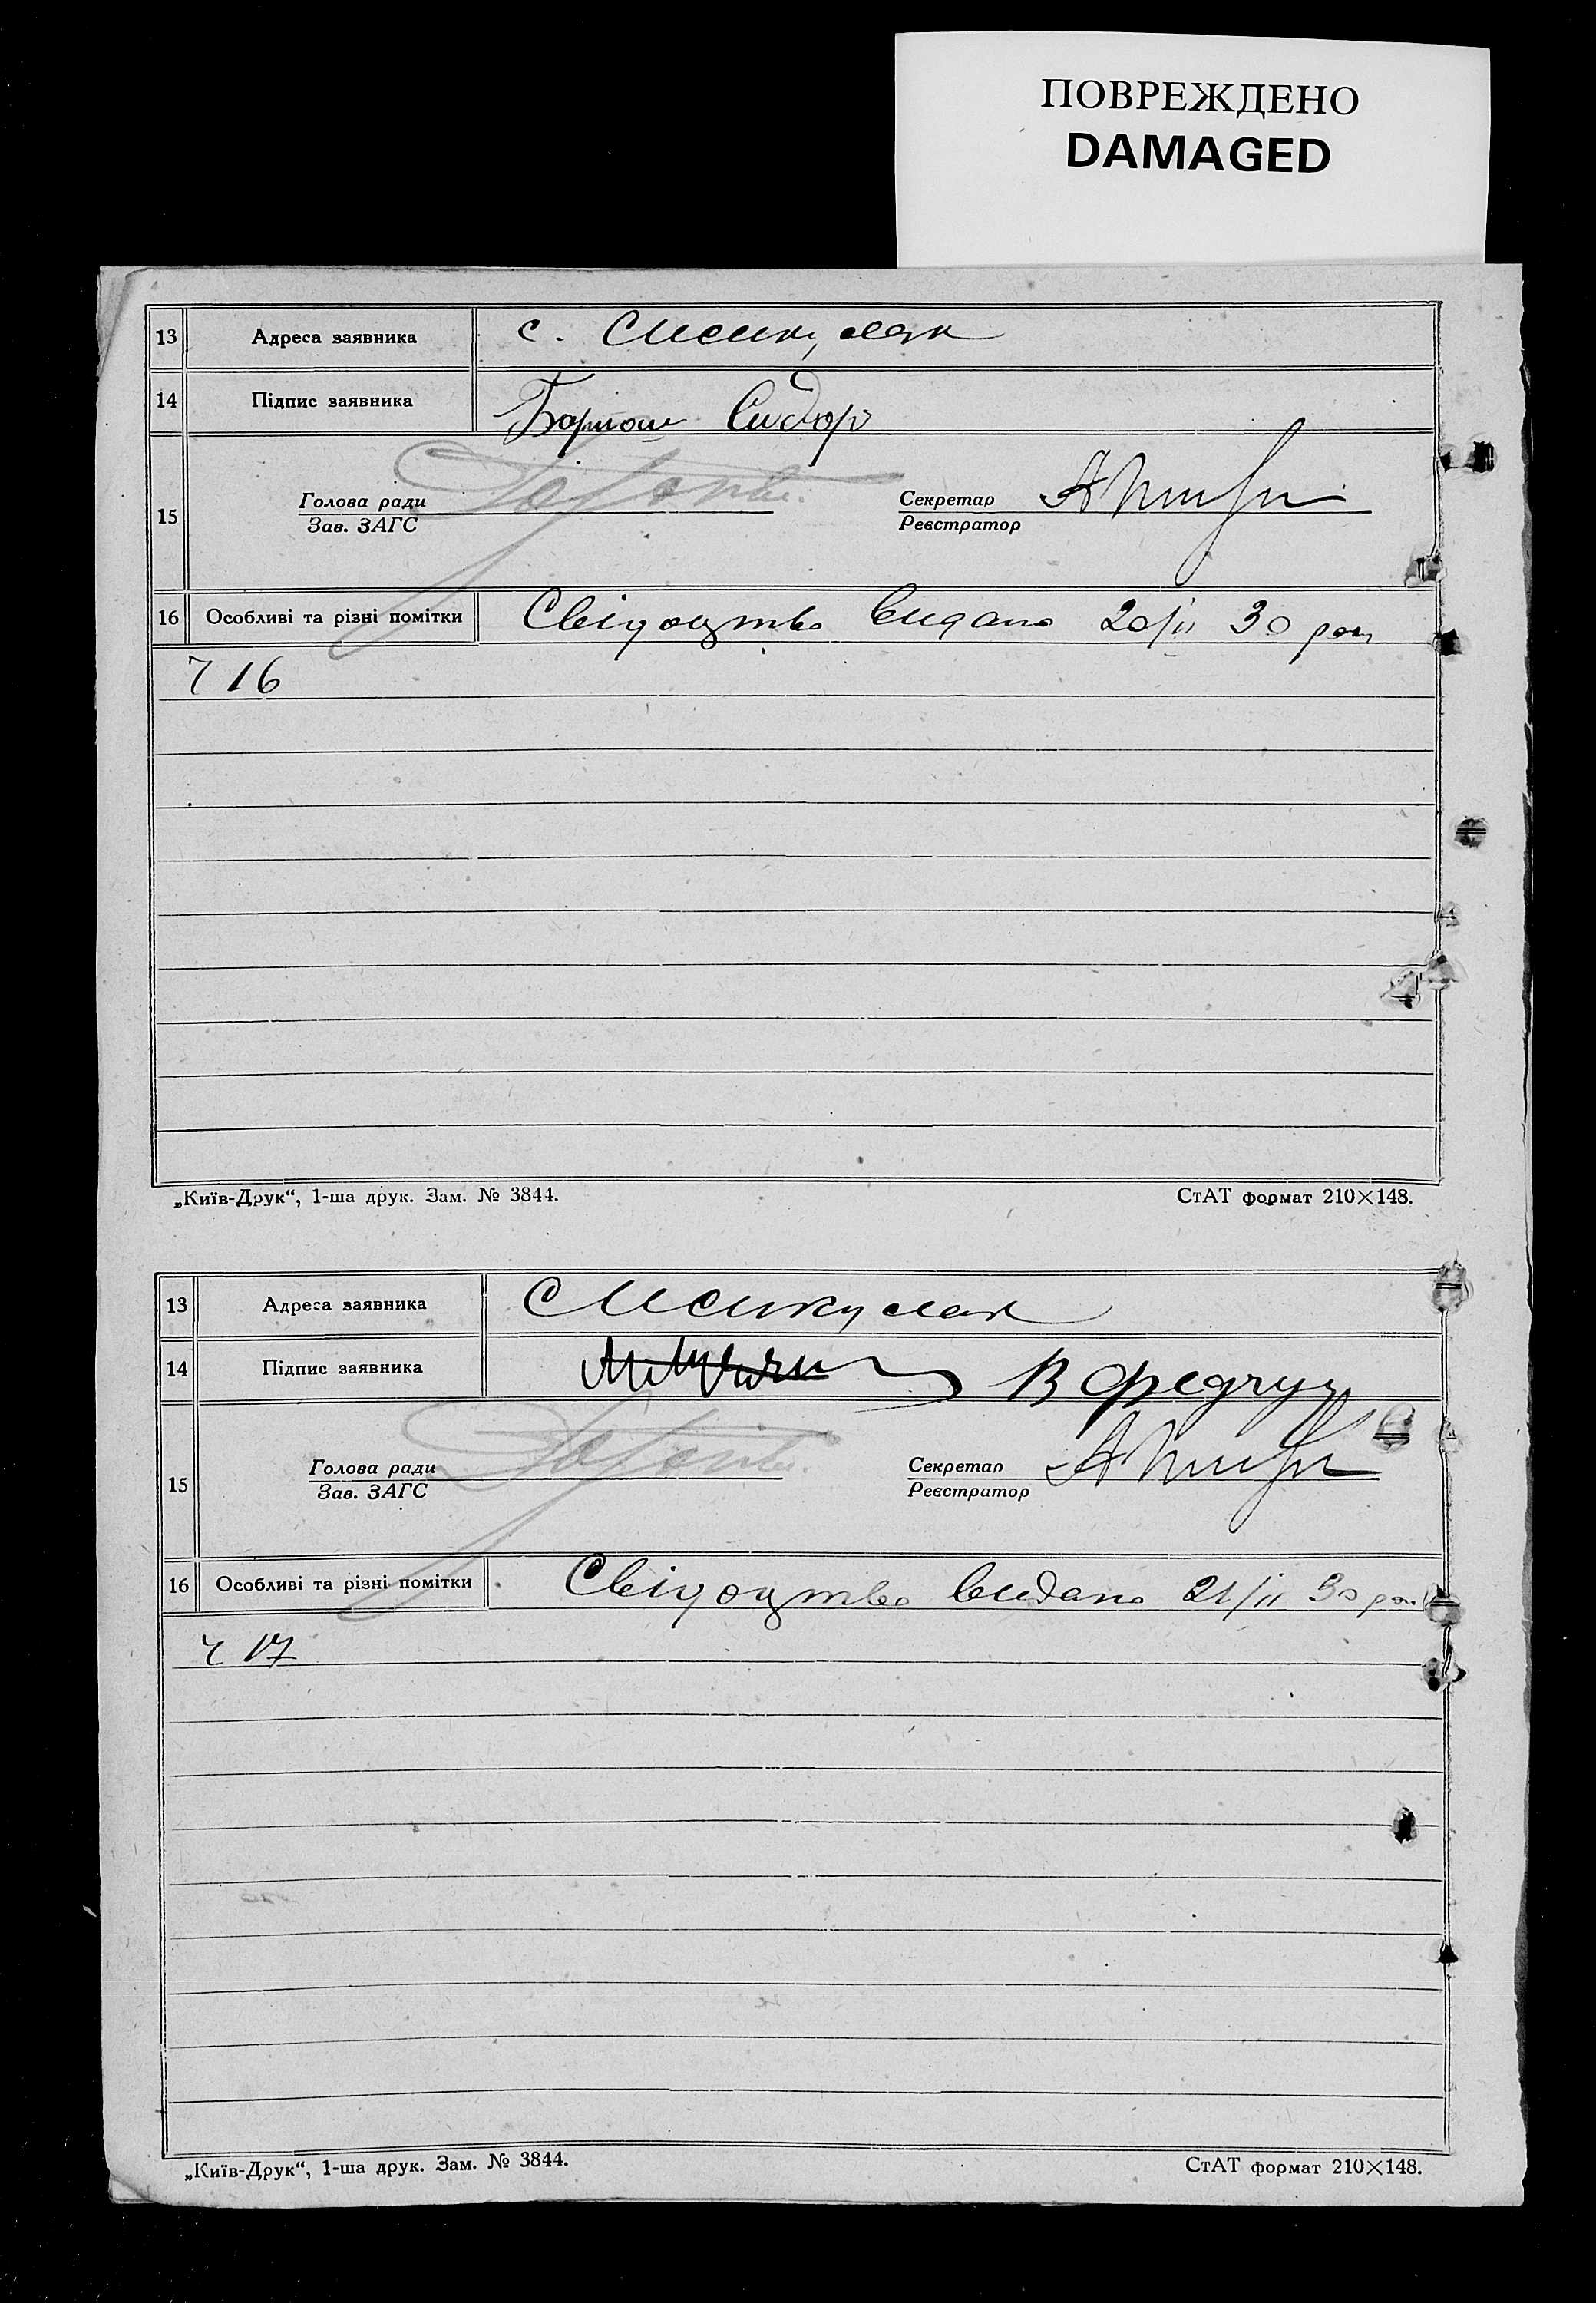 ПОВРЕЖДЕНО
DAMAGED
13 Адреса заявника с.
14 Підпис заявника Сидор
15 Голова ради Секретар
Зав. ЗАГС Реєстратор
16 Особливі та різні помітки Свідоцтво видано 20/II 30 рок
ч 16
„Київ-Друк“, 1-ша друк. Зам. № 3844. СтАТ формат 210×148.
13 Адреса заявника
14 Підпис заявника В Федчун
15 Голова ради Секретар
Зав. ЗАГС Реєстратор
16 Особливі та різні помітки Свідоцтво видано 21/II 30 рок
ч 17
„Київ-Друк“, 1-ша друк. Зам. № 3844. СтАТ формат 210×148.